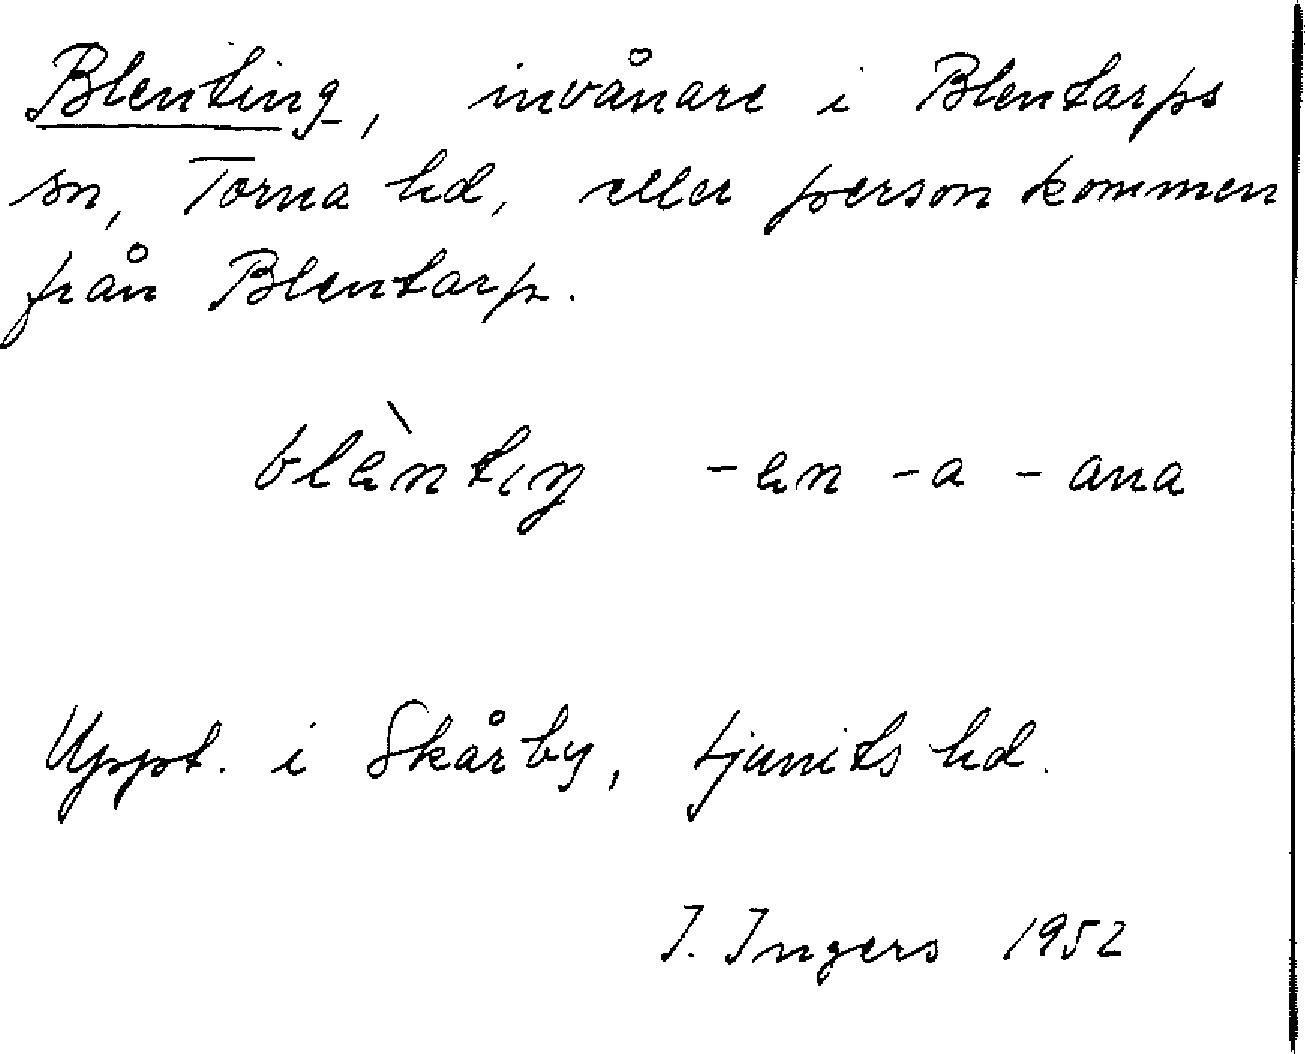 Blenting, invånare i Blentarps
sn, Torna hd, eller person kommen
från Blentarp.
blèntıŋ -en -a -ana
Uppt. i Skårby, Ljunits hd.
I. Ingers 1952